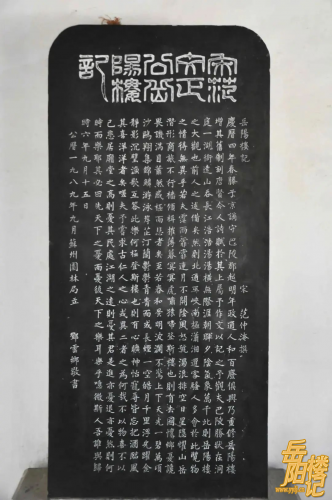 宋范
文正
公岳
陽樓
記
岳陽樓記 宋 范仲淹撰
慶曆四年春滕子京謫守巴陵郡越明年政通人和百廢俱興乃重修岳陽樓
增其舊制刻唐賢今人詩賦於其上屬予作文以記之予觀夫巴陵勝狀在洞
庭一湖銜遠山吞長江浩浩湯湯橫無際涯朝暉夕陰氣象萬千此則岳陽樓
之大觀也前人之述備矣然則北通巫峽南極瀟湘遷客騷人多會於此覽物
之情得無異乎若夫霪雨霏霏連月不開陰風怒號濁浪排空日星隱曜山岳
潛形商旅不行檣傾楫摧薄暮冥冥虎嘯猿啼登斯樓也則有去國懷鄉憂讒
畏譏滿目蕭然感極而悲者矣至若春和景明波瀾不驚上下天光一碧萬頃
沙鷗翔集錦鱗游泳岸芷汀蘭郁郁青青而或長煙一空皓月千里浮光躍金
靜影沉璧漁歌互答此樂何極登斯樓也則有心曠神怡寵辱皆忘把酒臨風
其喜洋洋者矣嗟夫予嘗求古仁人之心或異二者之為何哉不以物喜不以
己悲居廟堂之高則憂其民處江湖之遠則憂其君是進亦憂退亦憂然則何
時而樂耶其必曰先天下之憂而憂後天下之樂而樂乎噫微斯人吾誰與歸
時六年九月十五日 鄧雲鄉敬書
公曆一九八九年九月蘇州園林局立
岳阳楼记